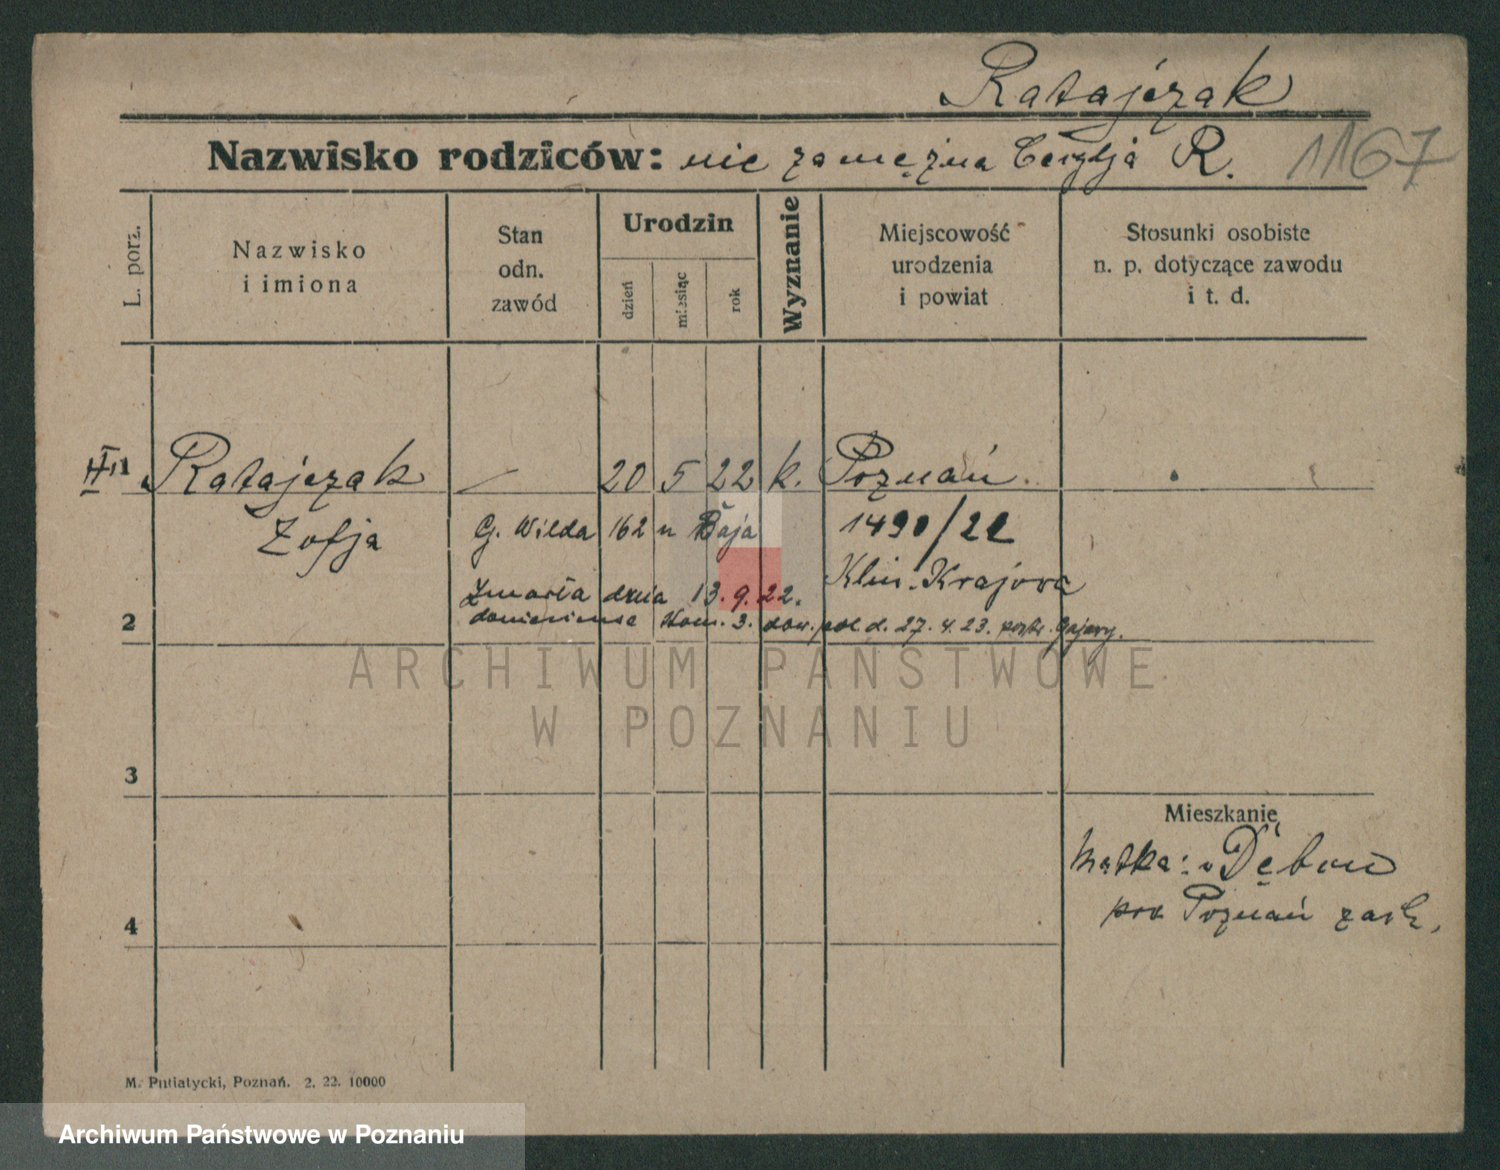 Ratajczak
Nazwisko rodziców: nie zamężna Cecylja R. 1167
L. porz.
Nazwisko
i imiona
Stan
odn.
zawód
Urodzin
dzień
miesiąc
rok
Wyznanie
Miejscowość
urodzenia
i powiat
Stosunki osobiste
n. p. dotyczące zawodu
i t. d.
1 Ratajczak — 20 5 22 k. Poznań.
Zofja G. Wilda 162 u Baja 1490/22
Klin. Krajowa
Zmarła dnia 13.9.22.
2 doniesienie Kom. 3. pol d. 27.4.23.
ARCHIWUM PAŃSTWOWE
W POZNANIU
3
Mieszkanie
Matka: w Dębou
4 Poznań zach.
M. Putiatycki, Poznań. 2. 22. 10000
Archiwum Państwowe w Poznaniu